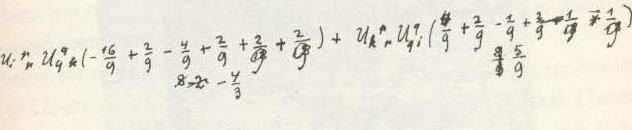 U_i^n_n U_q^q_k (-16/9 + 2/9 - 4/9 + 2/9 + 2/9 + 2/9) + U_k^n_n U_q^q_i (4/9 + 2/9 - 1/9 + 2/9 1/9 1/9)
-4/3 5/9